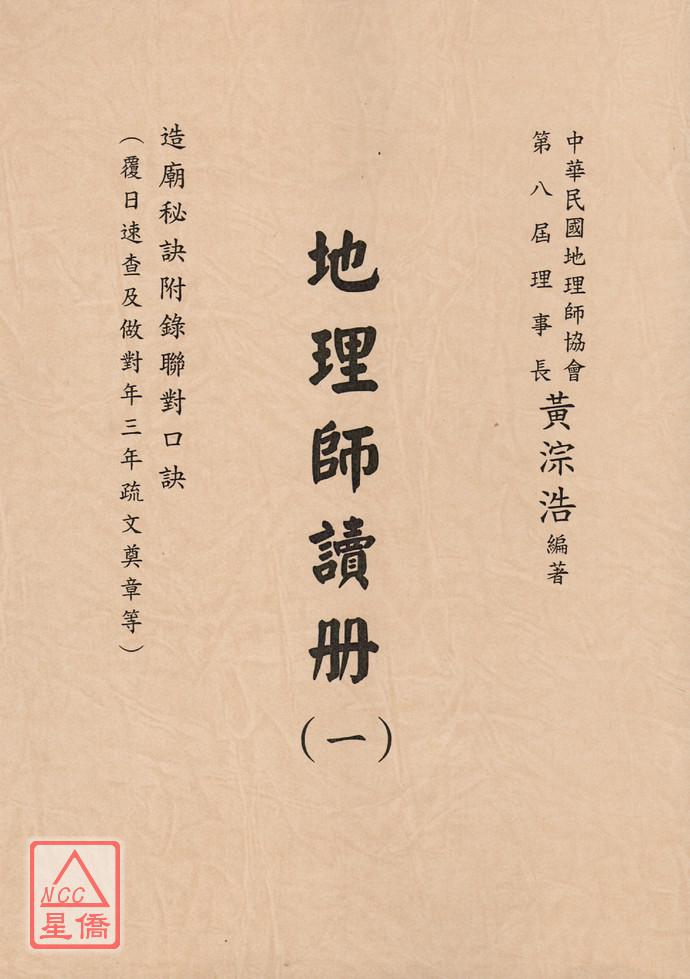 中華民國地理師協會
第八屆理事長
黃淙浩編著
地理師讀册(一)
造廟秘訣附錄聯對口訣
(覆日速查及做對年三年疏文奠章等)
NCC
星僑